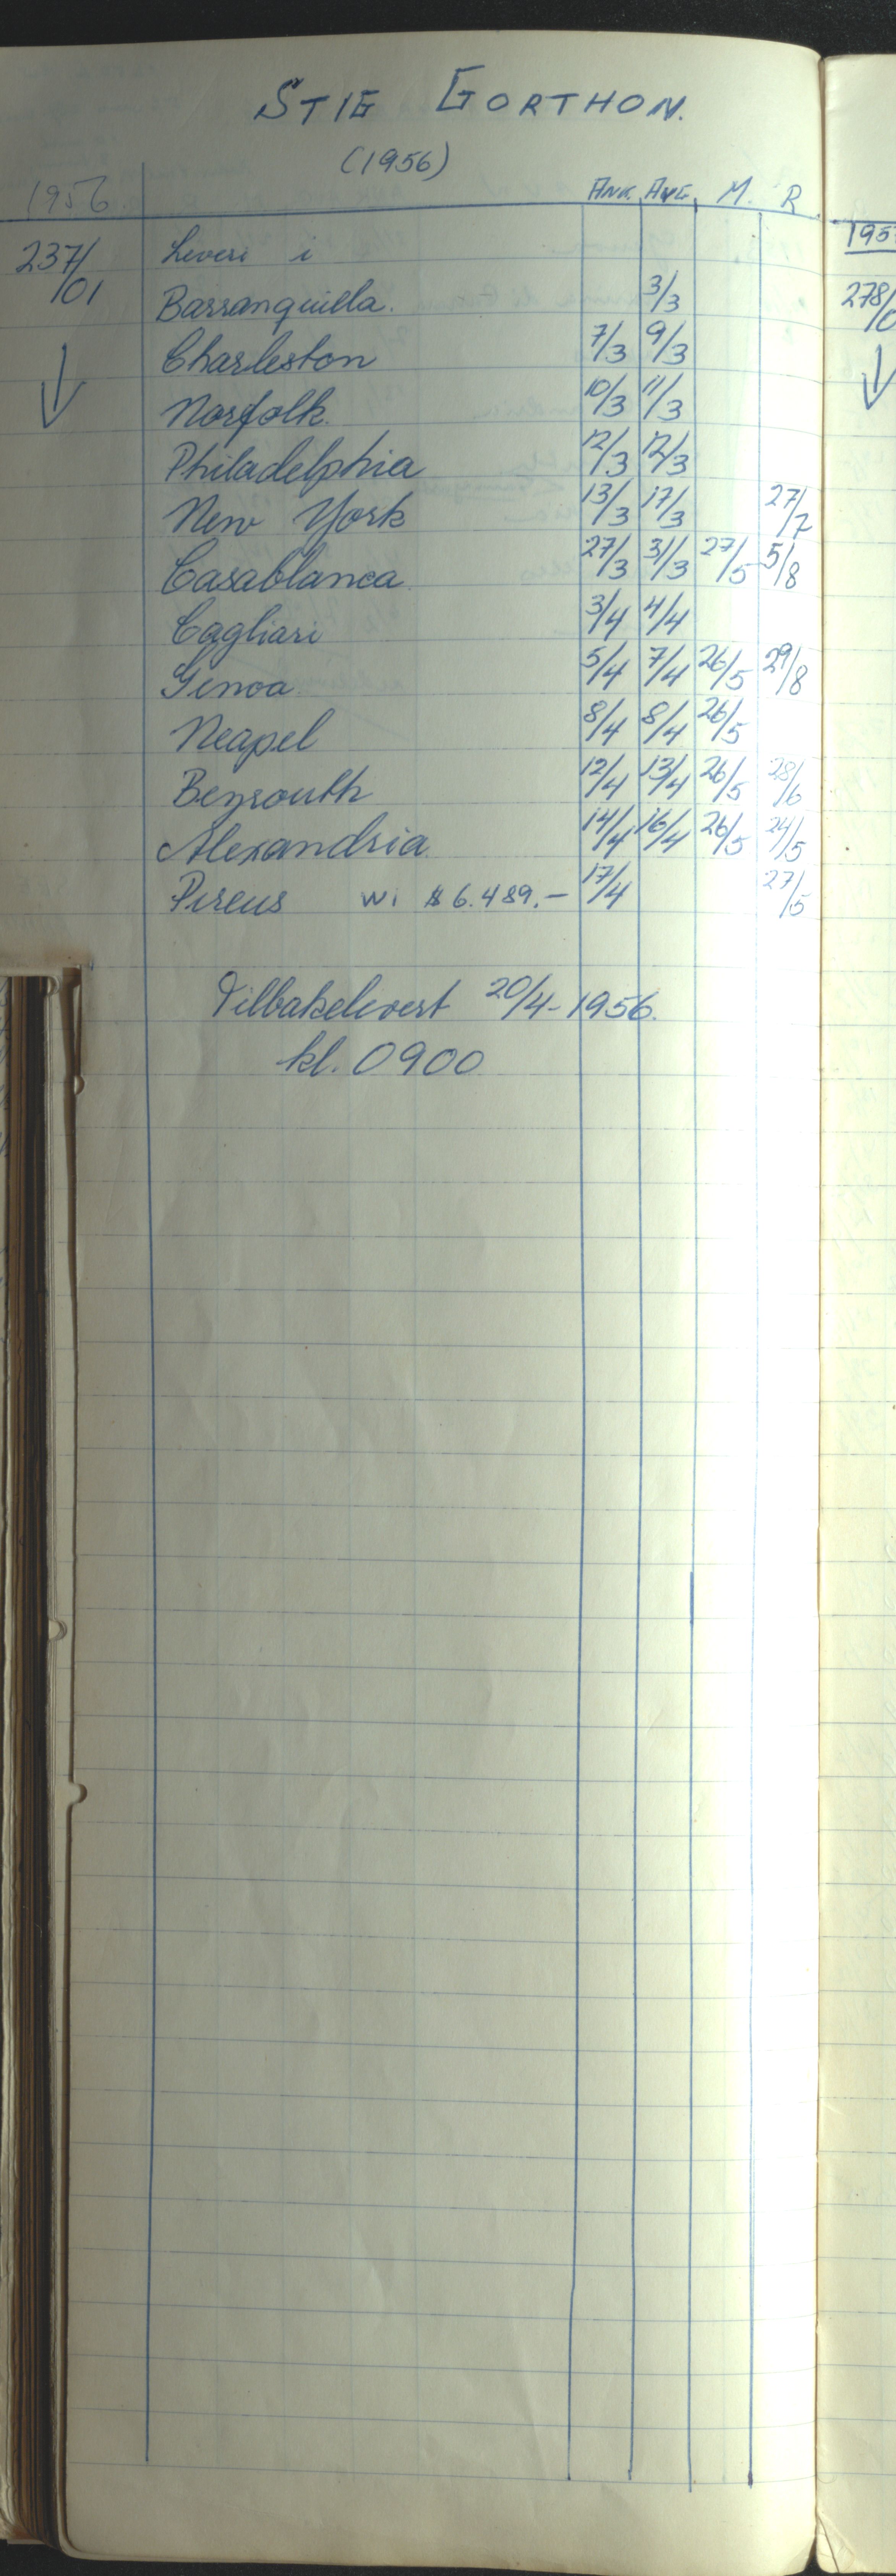 STIG GORTHON.
(1956)
1956 ANK. AVG. M. R
237/01 Leveri i
Barranquilla. 3/3
Charleston 7/3 9/3
Norfolk. 10/3 11/3
Philadelphia 12/3 12/3
New York 13/3 17/3 27/7
Casablanca 27/3 31/3 27/5 5/8
Cagliari 3/4 4/4
Genoa 5/4 7/4 26/5 29/8
Neapel 8/4 8/4 26/5
Beyrouth 12/4 13/4 26/5 28/6
Alexandria. 14/4 16/4 26/5 24/5
Pireus WI $ 6.489.- 17/4 27/5
Tilbakelevert 20/4-1956.
kl. 0900
195
278/0